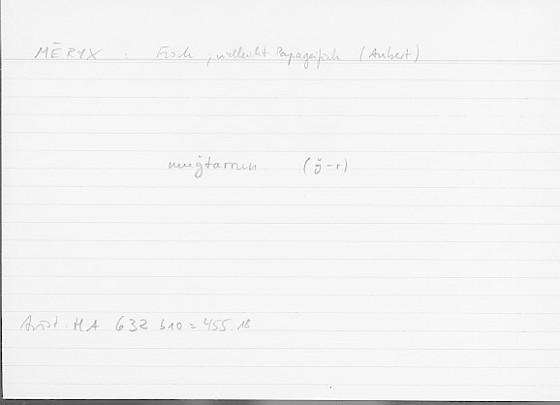 MĒRYX : Fisch, vielleicht Papageifisch (Aubert)
muǧtarrun (ǧ-r)
Arist. HA 632 b10 = 455.18